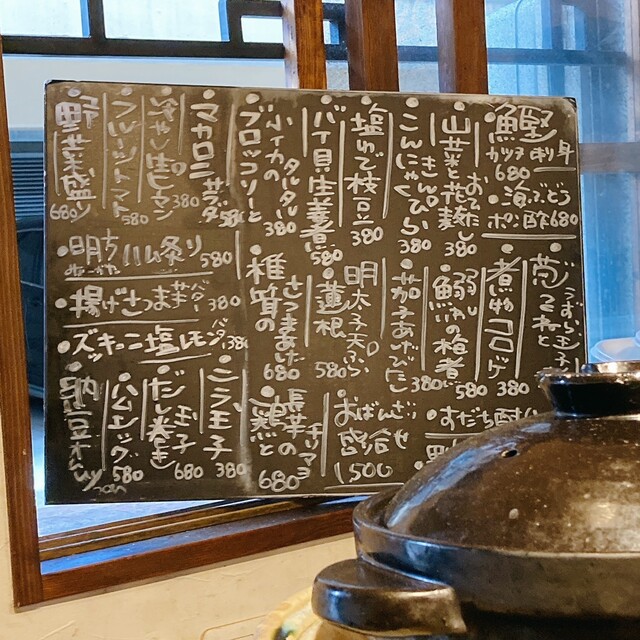 鰹
カツオ
刺身
680
海ぶどう
ポン酢 680
山芋と花麩
おでん
380
きんぴら
こんにゃく
380
塩ゆで枝豆
380
バイ貝生姜煮
580
小イカの
タルタル
380
ブロッコリーと
マカロニ
サラダ
冷やし生ピーマン
380
フルーツトマト
580
野菜盛り
680
葱
うずら玉子
煮物コロッケ
380
鰯の梅煮
580
茄子あげびたし
380
明太子天ぷら
蓮根
580
さつまあげ
椎茸の
680
明方ハム炙り
580
揚げさつま芋バター
380
ズッキーニ塩レモン
380
すだち酎ハイ
おばんざい
盛合せ
1500
長芋の
チリマヨ
鶏と
680
ニラ玉子
380
玉子
だし巻き
680
ハムエッグ
580
納豆オムレツ